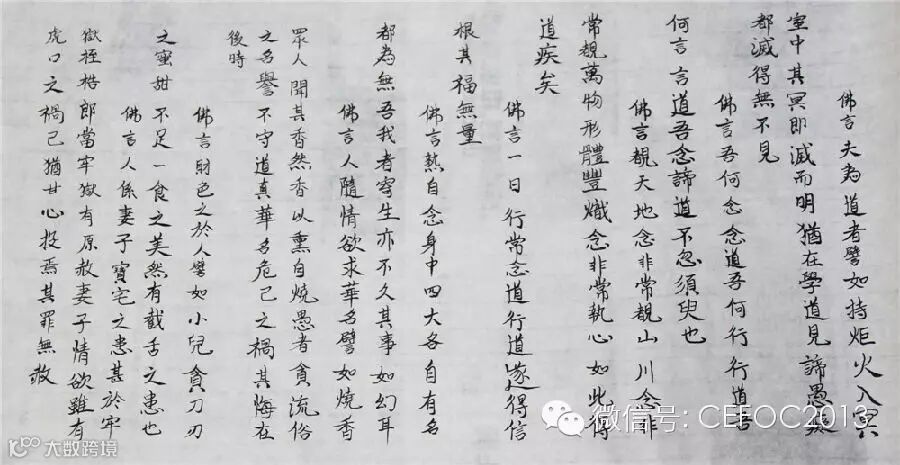 佛言夫為道者譬如持炬火入冥
室中其冥即滅而明猶在學道見諦愚癡
都滅得無不見
佛言吾何念念道吾何行行道吾
何言言道吾念諦道不忽須臾也
佛言覩天地念非常覩山川念非
常覩萬物形體豐熾念非常執心如此得
道疾矣
佛言一日行常念道行道遂得信
根其福無量
佛言熟自念身中四大各自有名
都為無吾我者寄生亦不久其事如幻耳
佛言人隨情欲求華名譬如燒香
眾人聞其香然香以熏自燒愚者貪流俗
之名譽不守道真華名危己之禍其悔在
後時
佛言財色之於人譬如小兒貪刀刃
之蜜甜不足一食之美然有截舌之患也
佛言人係妻子寶宅之患甚於牢
獄桎梏郎當牢獄有原赦妻子情欲雖有
虎口之禍己猶甘心投焉其罪無赦
微信号: CEFOC2013
大数跨境